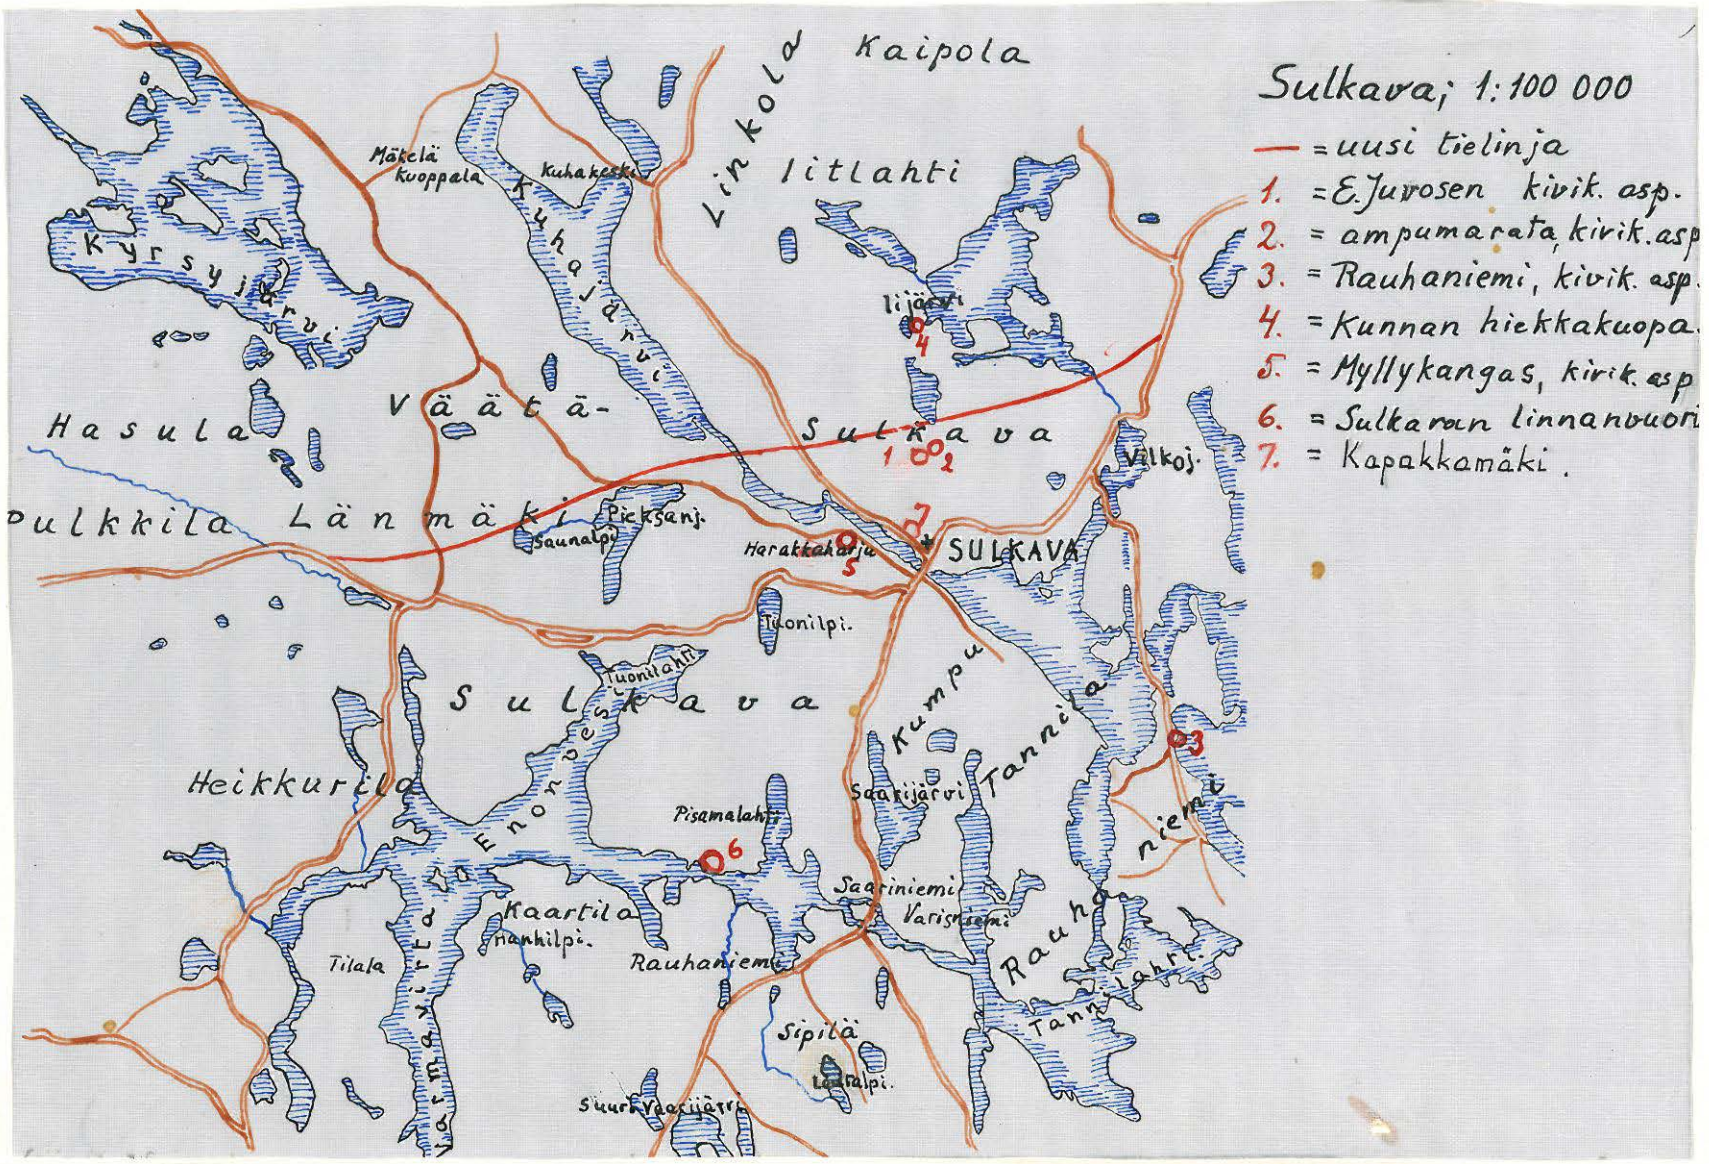 Kaipola
Linkola
Sulkava; 1:100 000
= uusi tielinja
1. = E. Juvosen kivik. asp.
2. = ampumarata, kivik. asp
3. = Rauhaniemi, kivik. asp.
4. = Kunnan hiekkakuopa.
5. = Myllykangas, kivik. asp
6. = Sulkavan linnanvuori
7. = Kapakkamäki.
Mätelä
Kuoppala
Kuhakoski
Iitlahti
Kuhajärvi
Kyrsyjärvi
Iijärvi
4
Väätä-
Hasula
Sulkava
1
2
Vilkoj.
Pulkkila
Länmäki
Pieksänj.
Saunalpi
7
Harakkaharju
5
SULKAVA
Tuonilpi.
Tuonilahti
Sulkava
Kumpu
Tannila
3
Heikkurila
Enonves
Saarijärvi
Pisamalahti
6
niemi
Saariniemi
Varisniemi
Kaartila
Hanhilpi.
Rauha
Rauhaniemi
Tilala
Varmavirta
Tannilahti.
Sipilä
Suuri Vaarijärvi